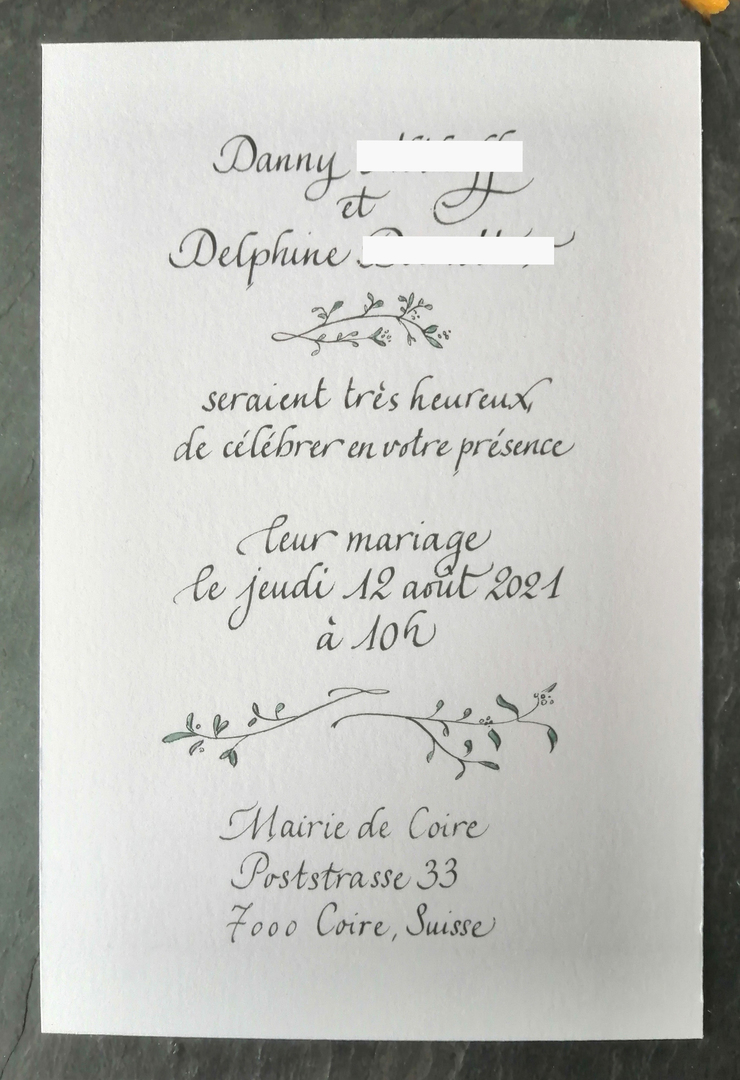 Danny
et
Delphine
seraient très heureux,
de célébrer en votre présence
leur mariage
le jeudi 12 août 2021
à 10h
Mairie de Coire
Poststrasse 33
7000 Coire, Suisse